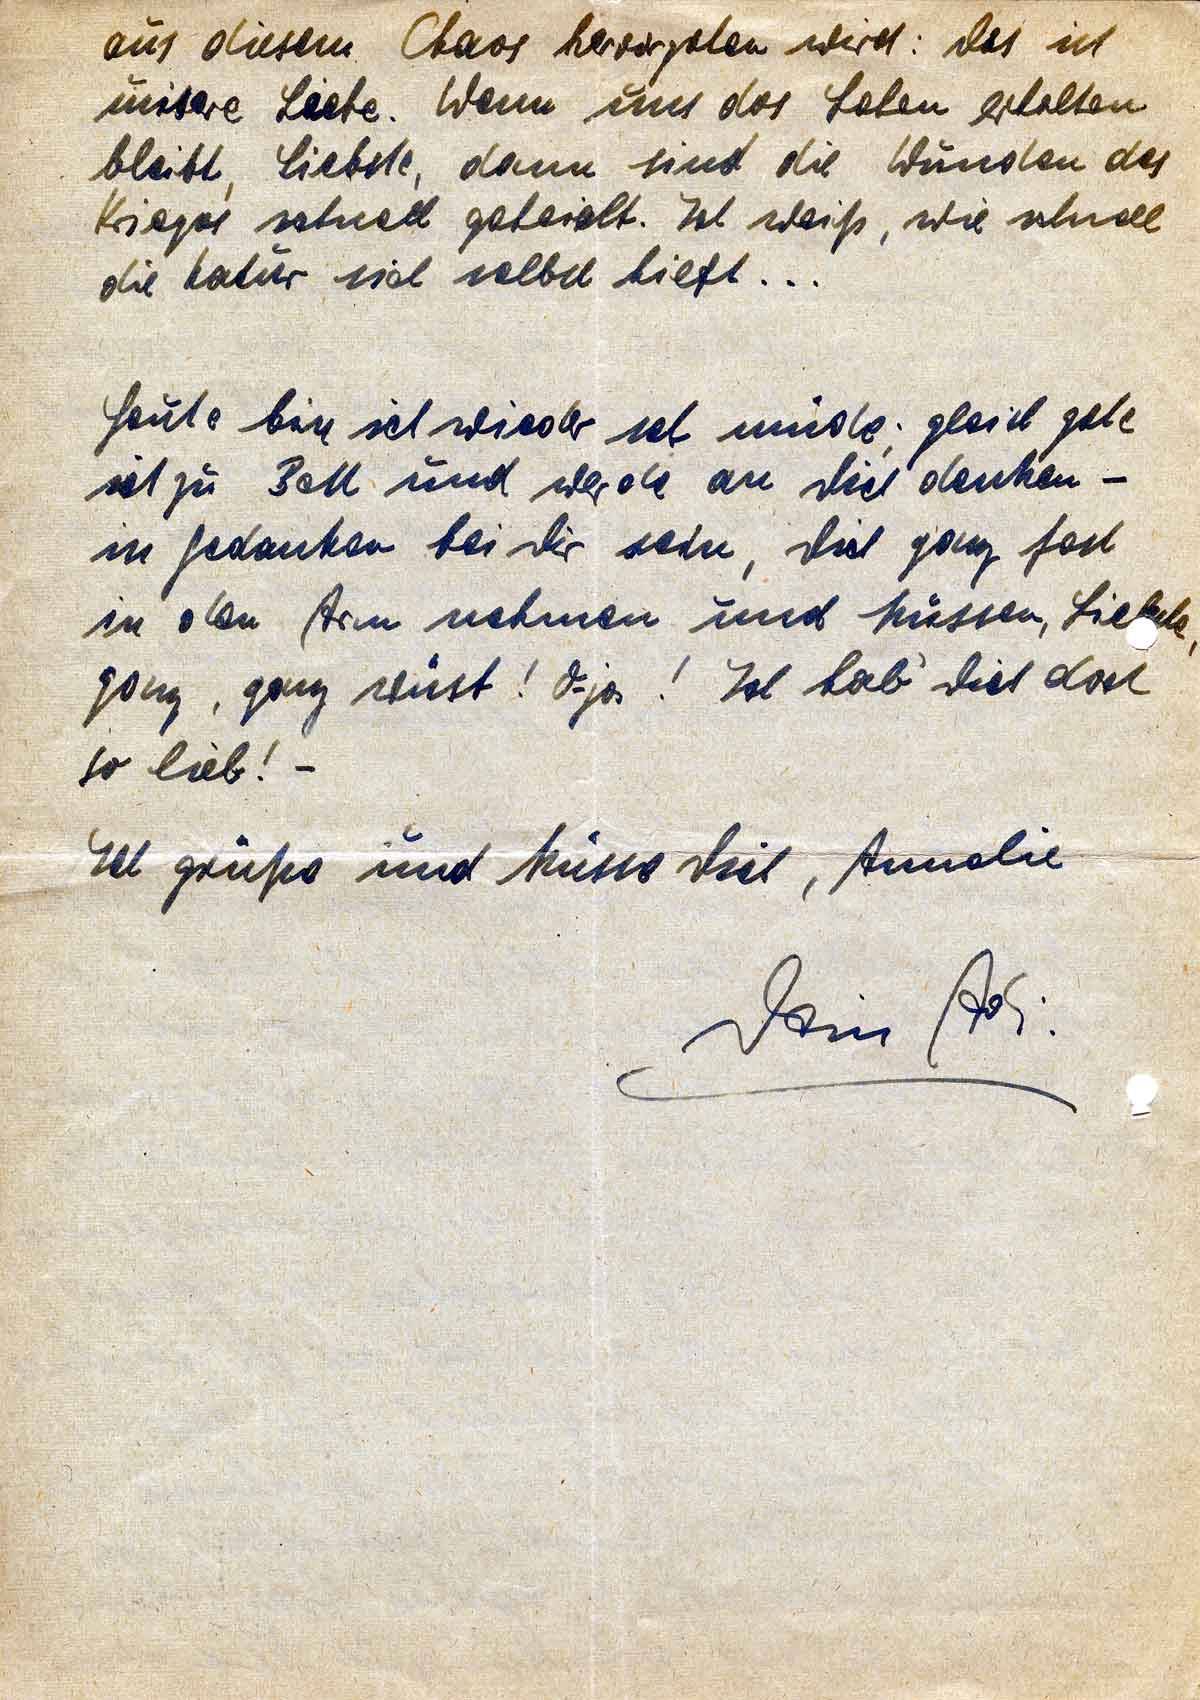 aus diesem Chaos hervorgehen wird: das ist
unsere Liebe. Wenn uns das Leben erhalten
bleibt, Liebste, dann sind die Wunden des
Krieges schnell geheielt. Ich weiß, wie schnell
die Natur sich selbst hielft...
Heute bin ich wieder sehr müde; gleich gehe
ich zu Bett und werde an Dich denken –
in Gedanken bei Dir sein, Dich ganz fest
in den Arm nehmen und küssen, Liebste,
ganz, ganz wüst! O-ja! Ich hab' Dich doch
so lieb! –
Ich grüße und küsse Dich, Annelie
Dein Adi.